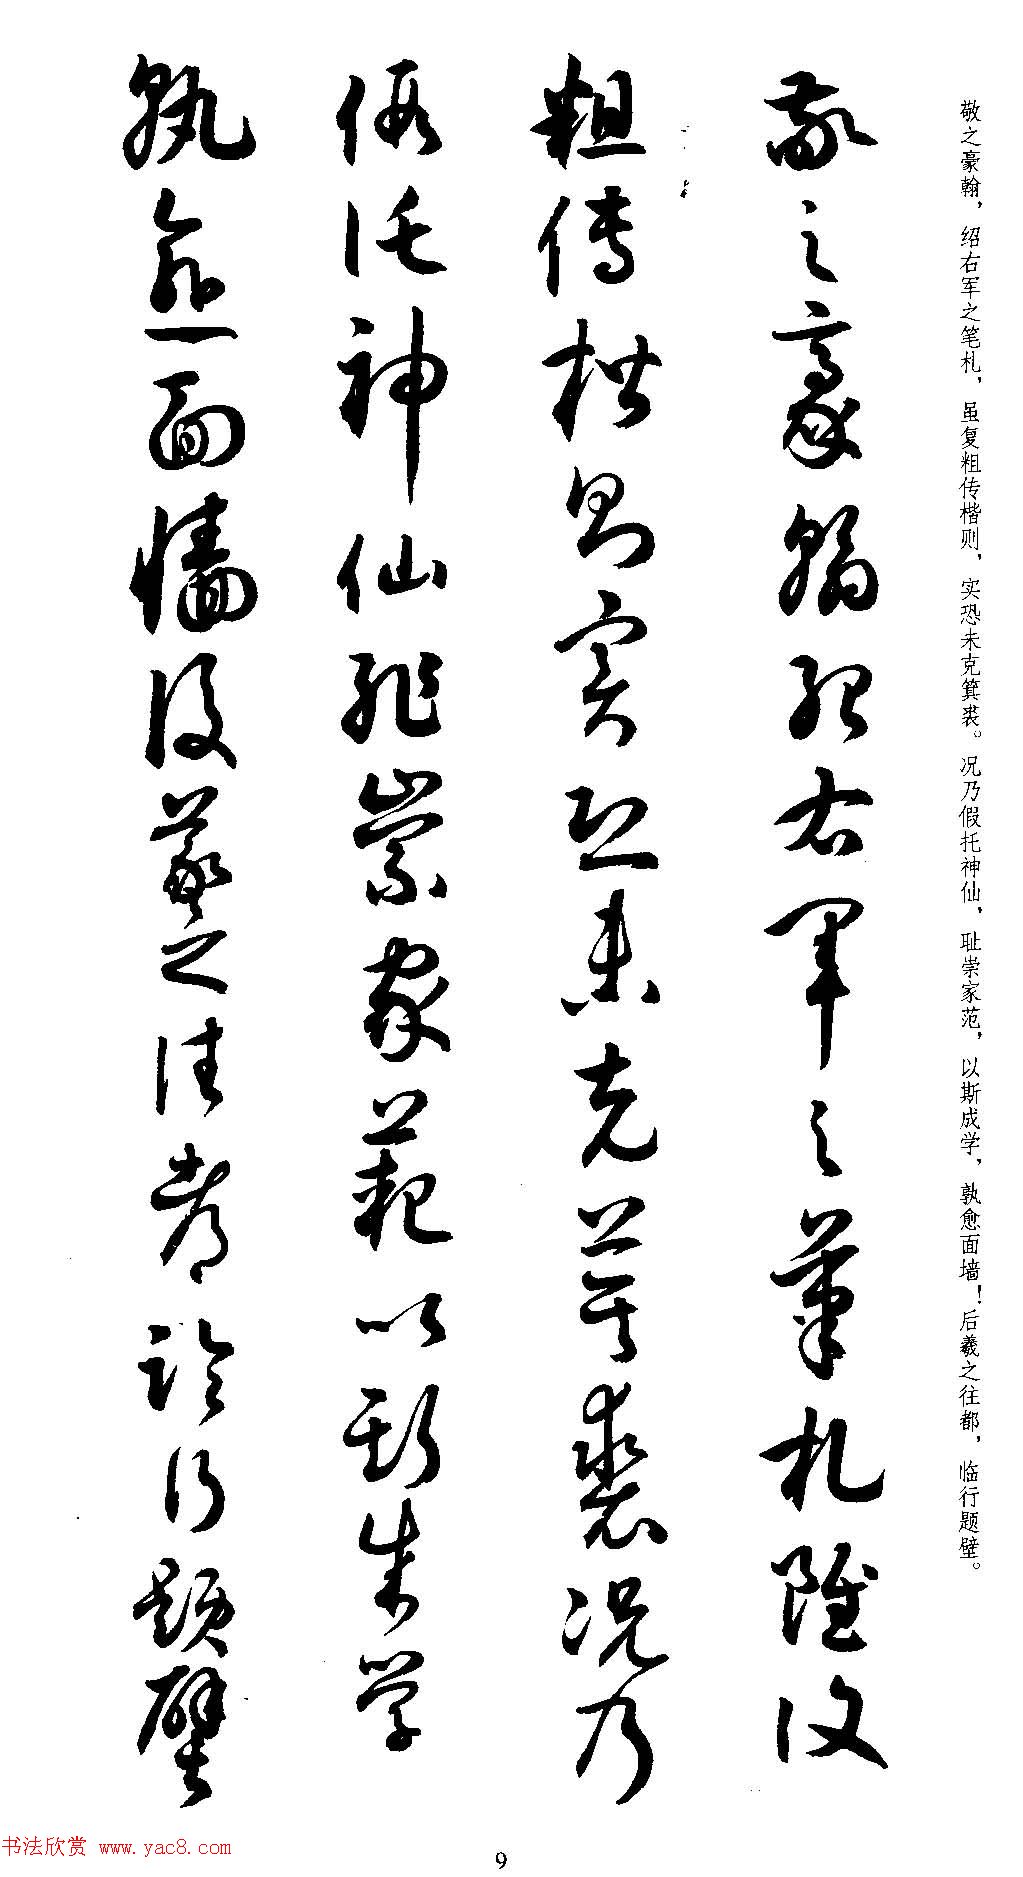 敬之豪翰，绍右军之笔札，虽复粗传楷则，实恐未克箕裘。况乃假托神仙，耻崇家范，以斯成学，孰愈面墙！后羲之往都，临行题壁。
敬之豪翰紹右軍之筆札雖復
粗傳楷則實恐未克箕裘況乃
假託神仙耻崇家範以斯成學
孰愈面墻後羲之往都臨行題壁
书法欣赏 www.yac8.com
9